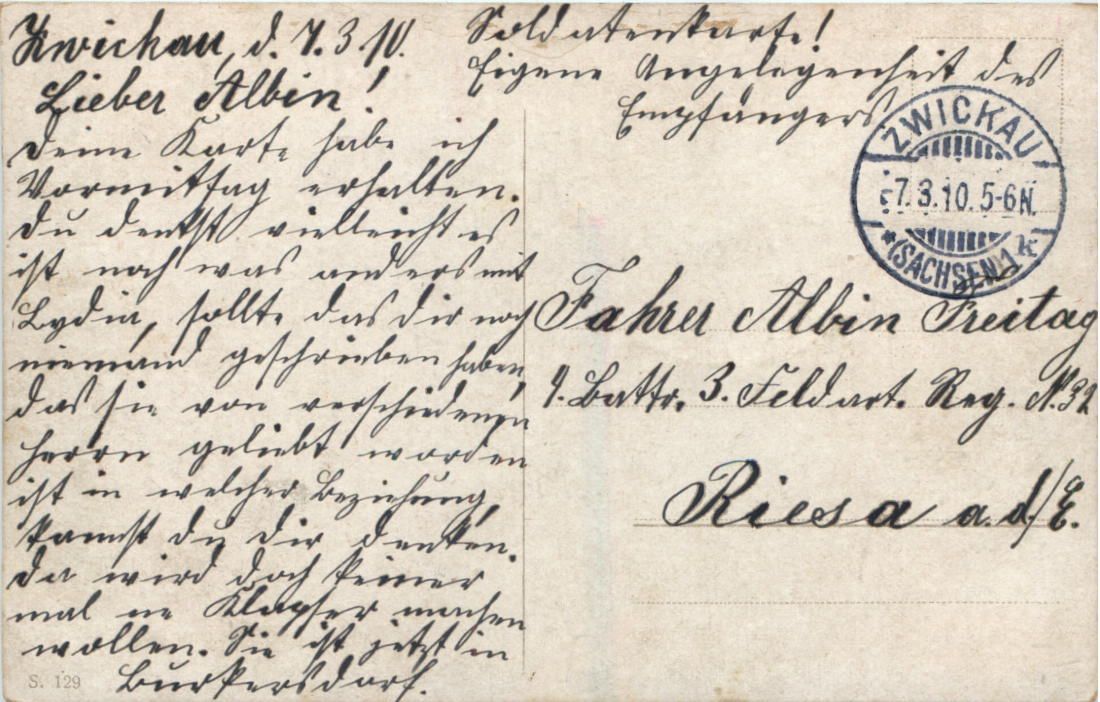 Zwickau, d. 7.3.10.
Lieber Albin!
Deine Karte habe ich
Vormittag erhalten.
Du denkst vielleicht es
ist noch was anders mit
Lydia, sollte das dir noch
niemand geschrieben haben,
das sie von verschiedenen
Herrn geliebt worden
ist in welcher Beziehung,
kannst du dir denken.
Da wird doch keiner
mal ne machen
wollen. Sie ist jetzt in
Burkersdorf.
Soldatenkarte!
Eigene Angelegenheit des
Empfängers
ZWICKAU
7.3.10. 5-6N.
*(SACHSEN)1k
Fahrer Albin Freitag
4. Battr. 3. Feldart. Reg. N. 32
Riesa a.d/E.
S. 129